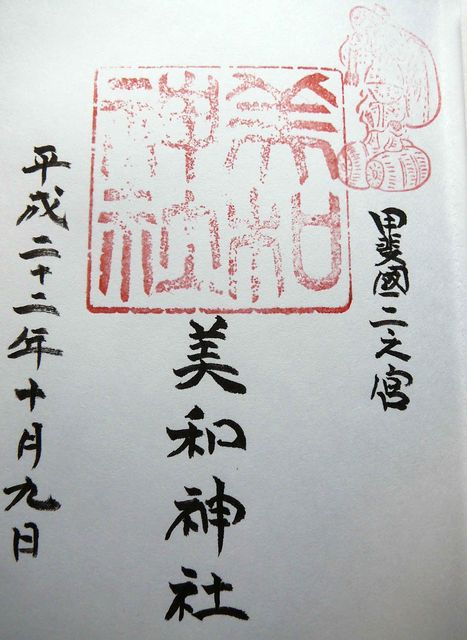 甲斐國二之宮
美和神社
美和神社
平成二十二年十月九日